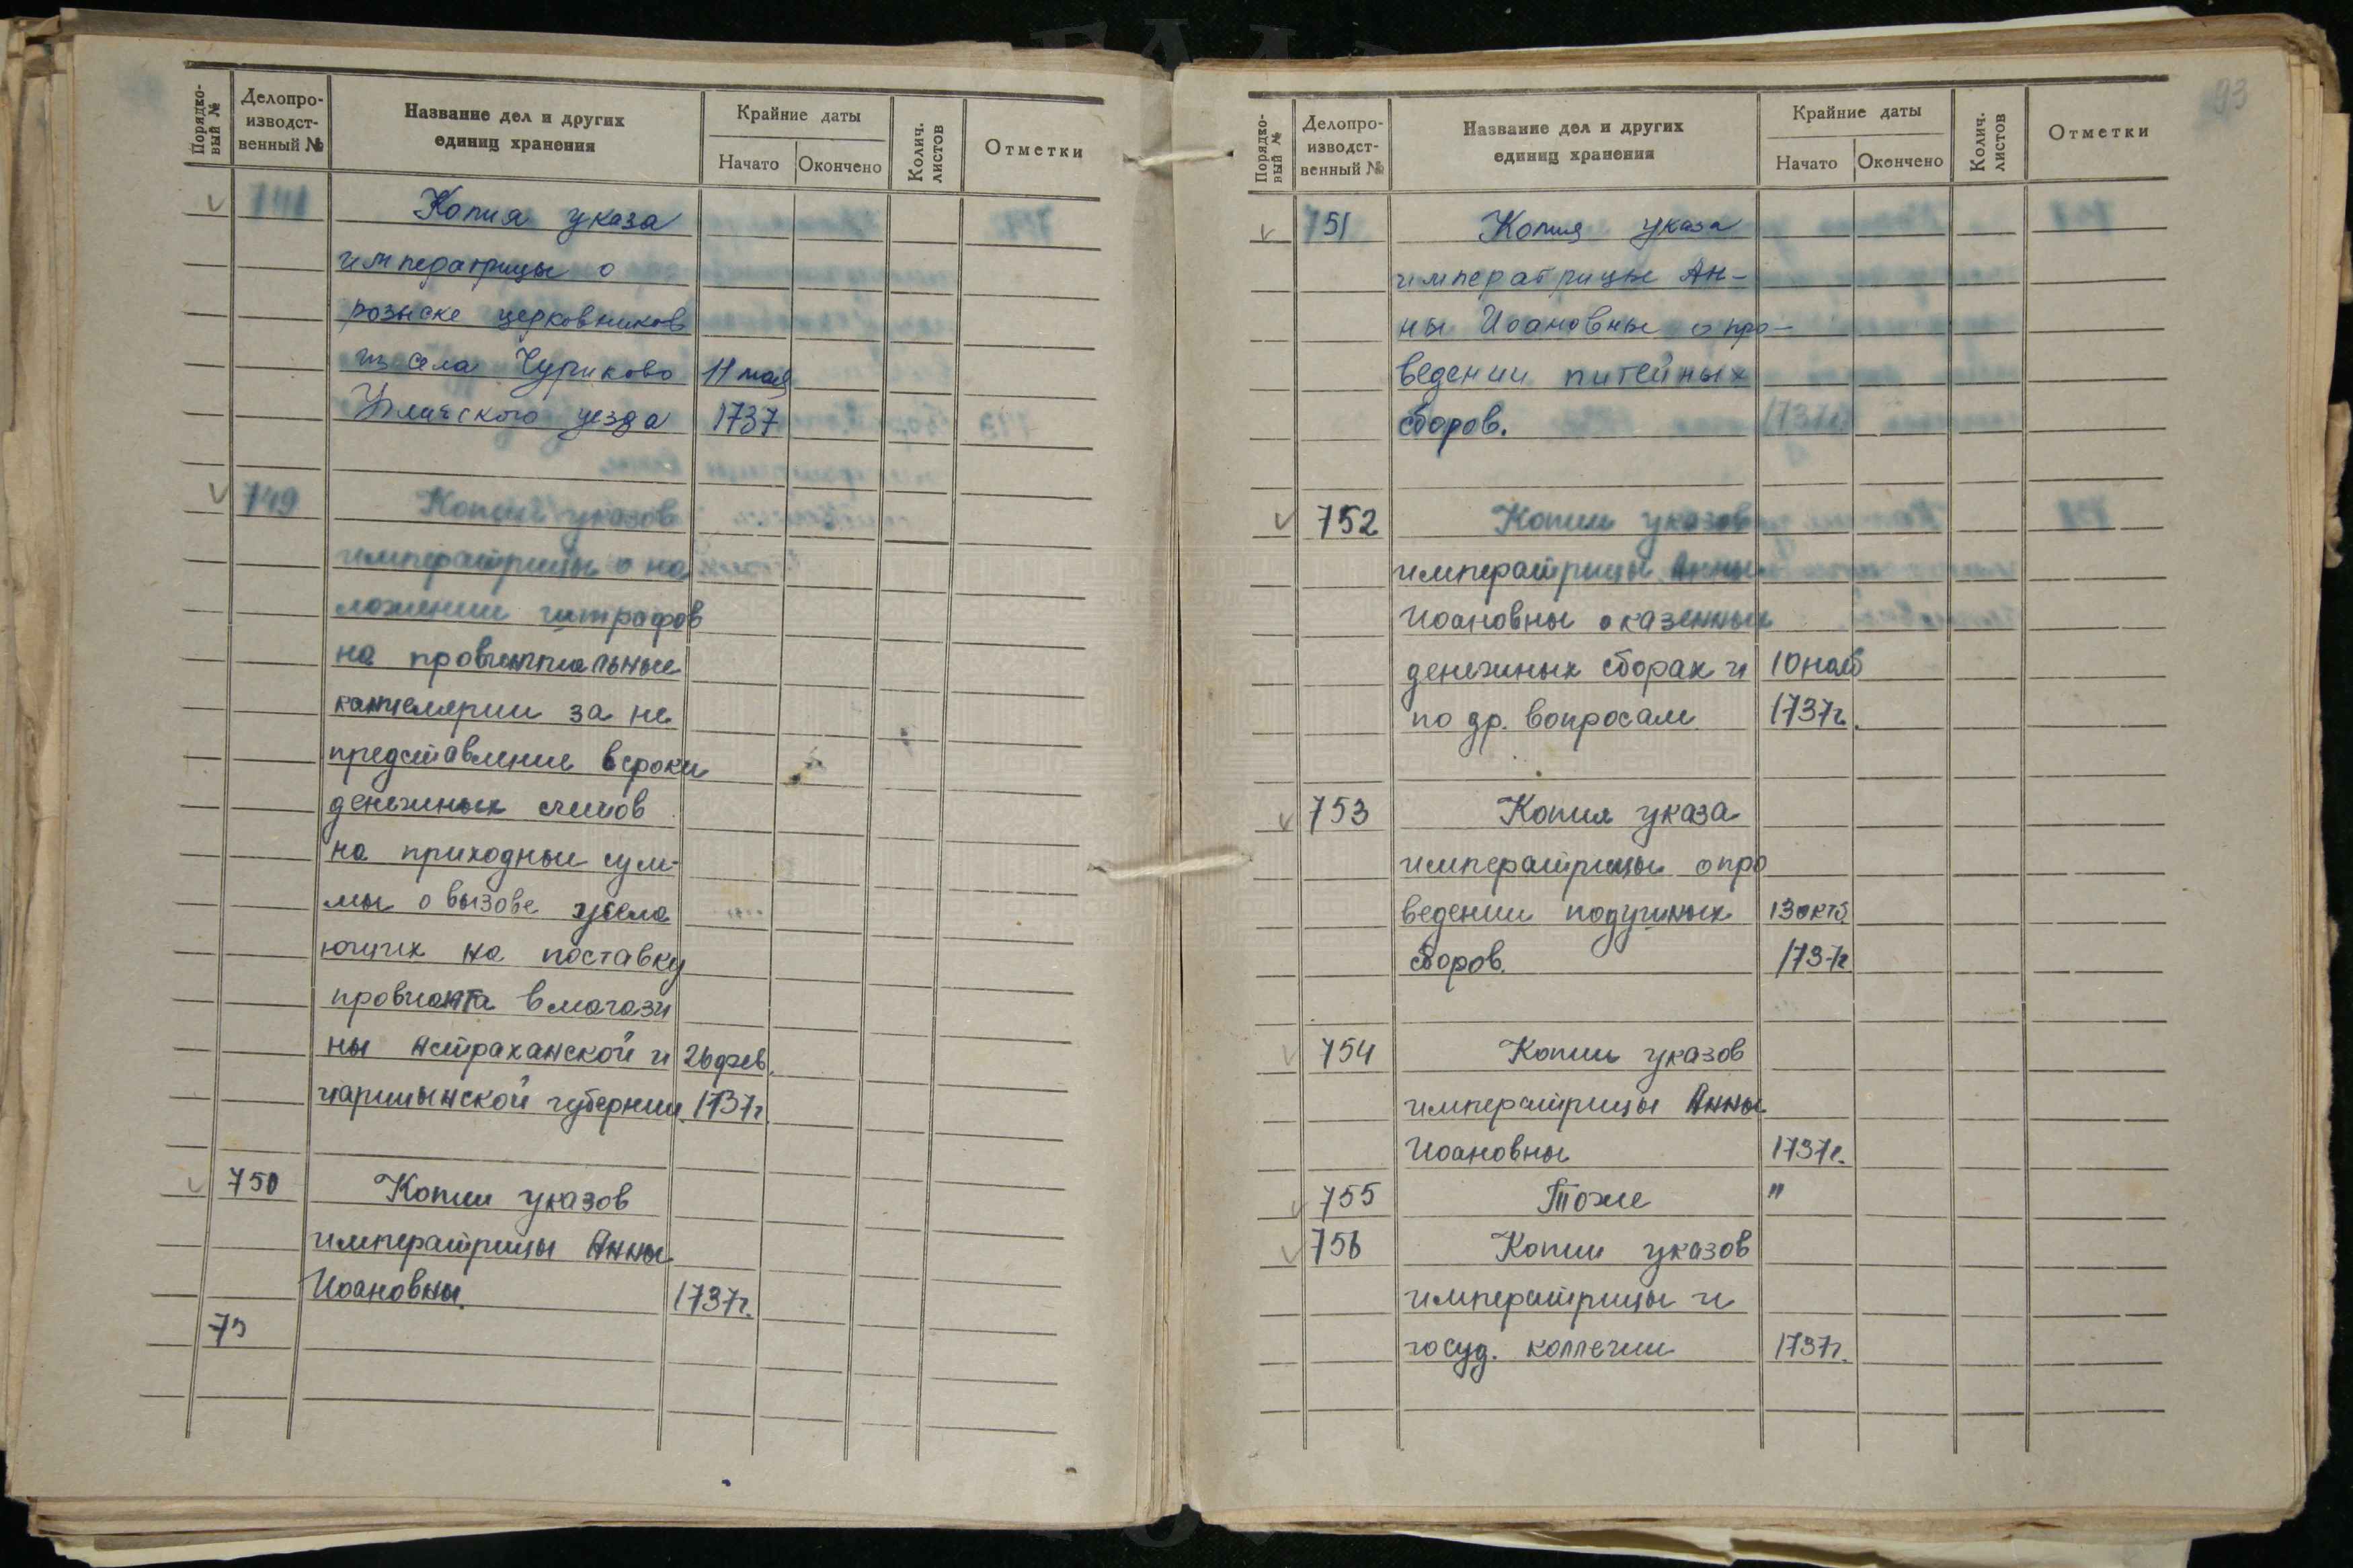 Порядко-
вый №
Делопро-
изводст-
венный №
Название дел и других
единиц хранения
Крайние даты
Начато
Окончено
Колич.
листов
Отметки
Копия указа
императрицы о
розыске церковников
из села Чуриково 11 мая
Угличского уезда 1737
749 Копии указов
императрицы о на
ложении штрафов
на провинциальные
канцелярии за не
представление в сроки
денежных счетов
на приходные сум-
мы о вызове жела
ющих на поставку
провианта в магази
ны Астраханской и 26 фев.
царицынской губернии 1737г.
750 Копии указов
императрицы Анны
Иоановны. 1737г.
93
Порядко-
вый №
Делопро-
изводст-
венный №
Название дел и других
единиц хранения
Крайние даты
Начато
Окончено
Колич.
листов
Отметки
751 Копия указа
императрицы Ан-
ны Иоановны о про-
ведении питейных
сборов. 1737г.
752 Копии указов
императрицы Анны
Иоановны о казенных
денежных сборах и 10 нояб
по др. вопросам 1737г.
753 Копия указа
императрицы о про
ведении подушных 13 окт.
сборов. 1737г
754 Копии указов
императрицы Анны
Иоановны 1737г.
755 Тоже "
756 Копии указов
императрицы и
госуд. коллегии 1737г.